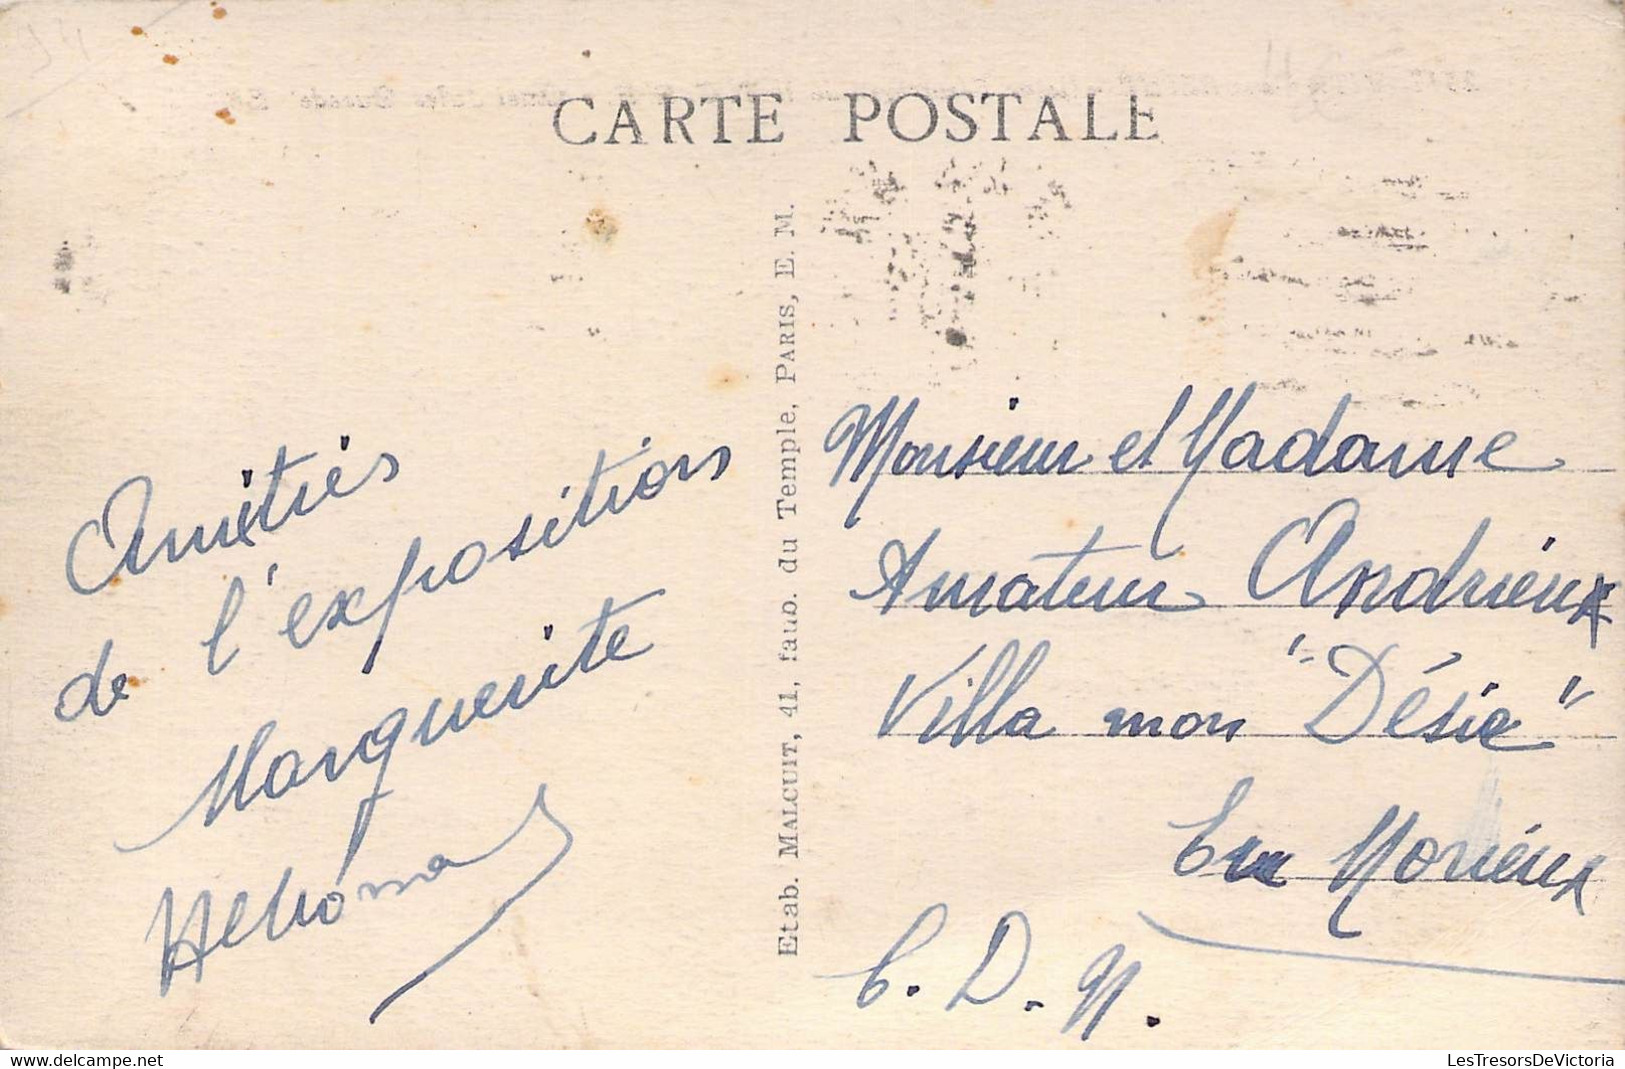 CARTE POSTALE
Amitiés
de l'exposition
Marguerite
Etab. MALCUIT, 41, faub. du Temple, PARIS, E. M.
Monsieur et Madame
Amateur Andrieux
Villa mon "Désir"
En Morieux
C. D. N.
LesTresorsDeVictoria